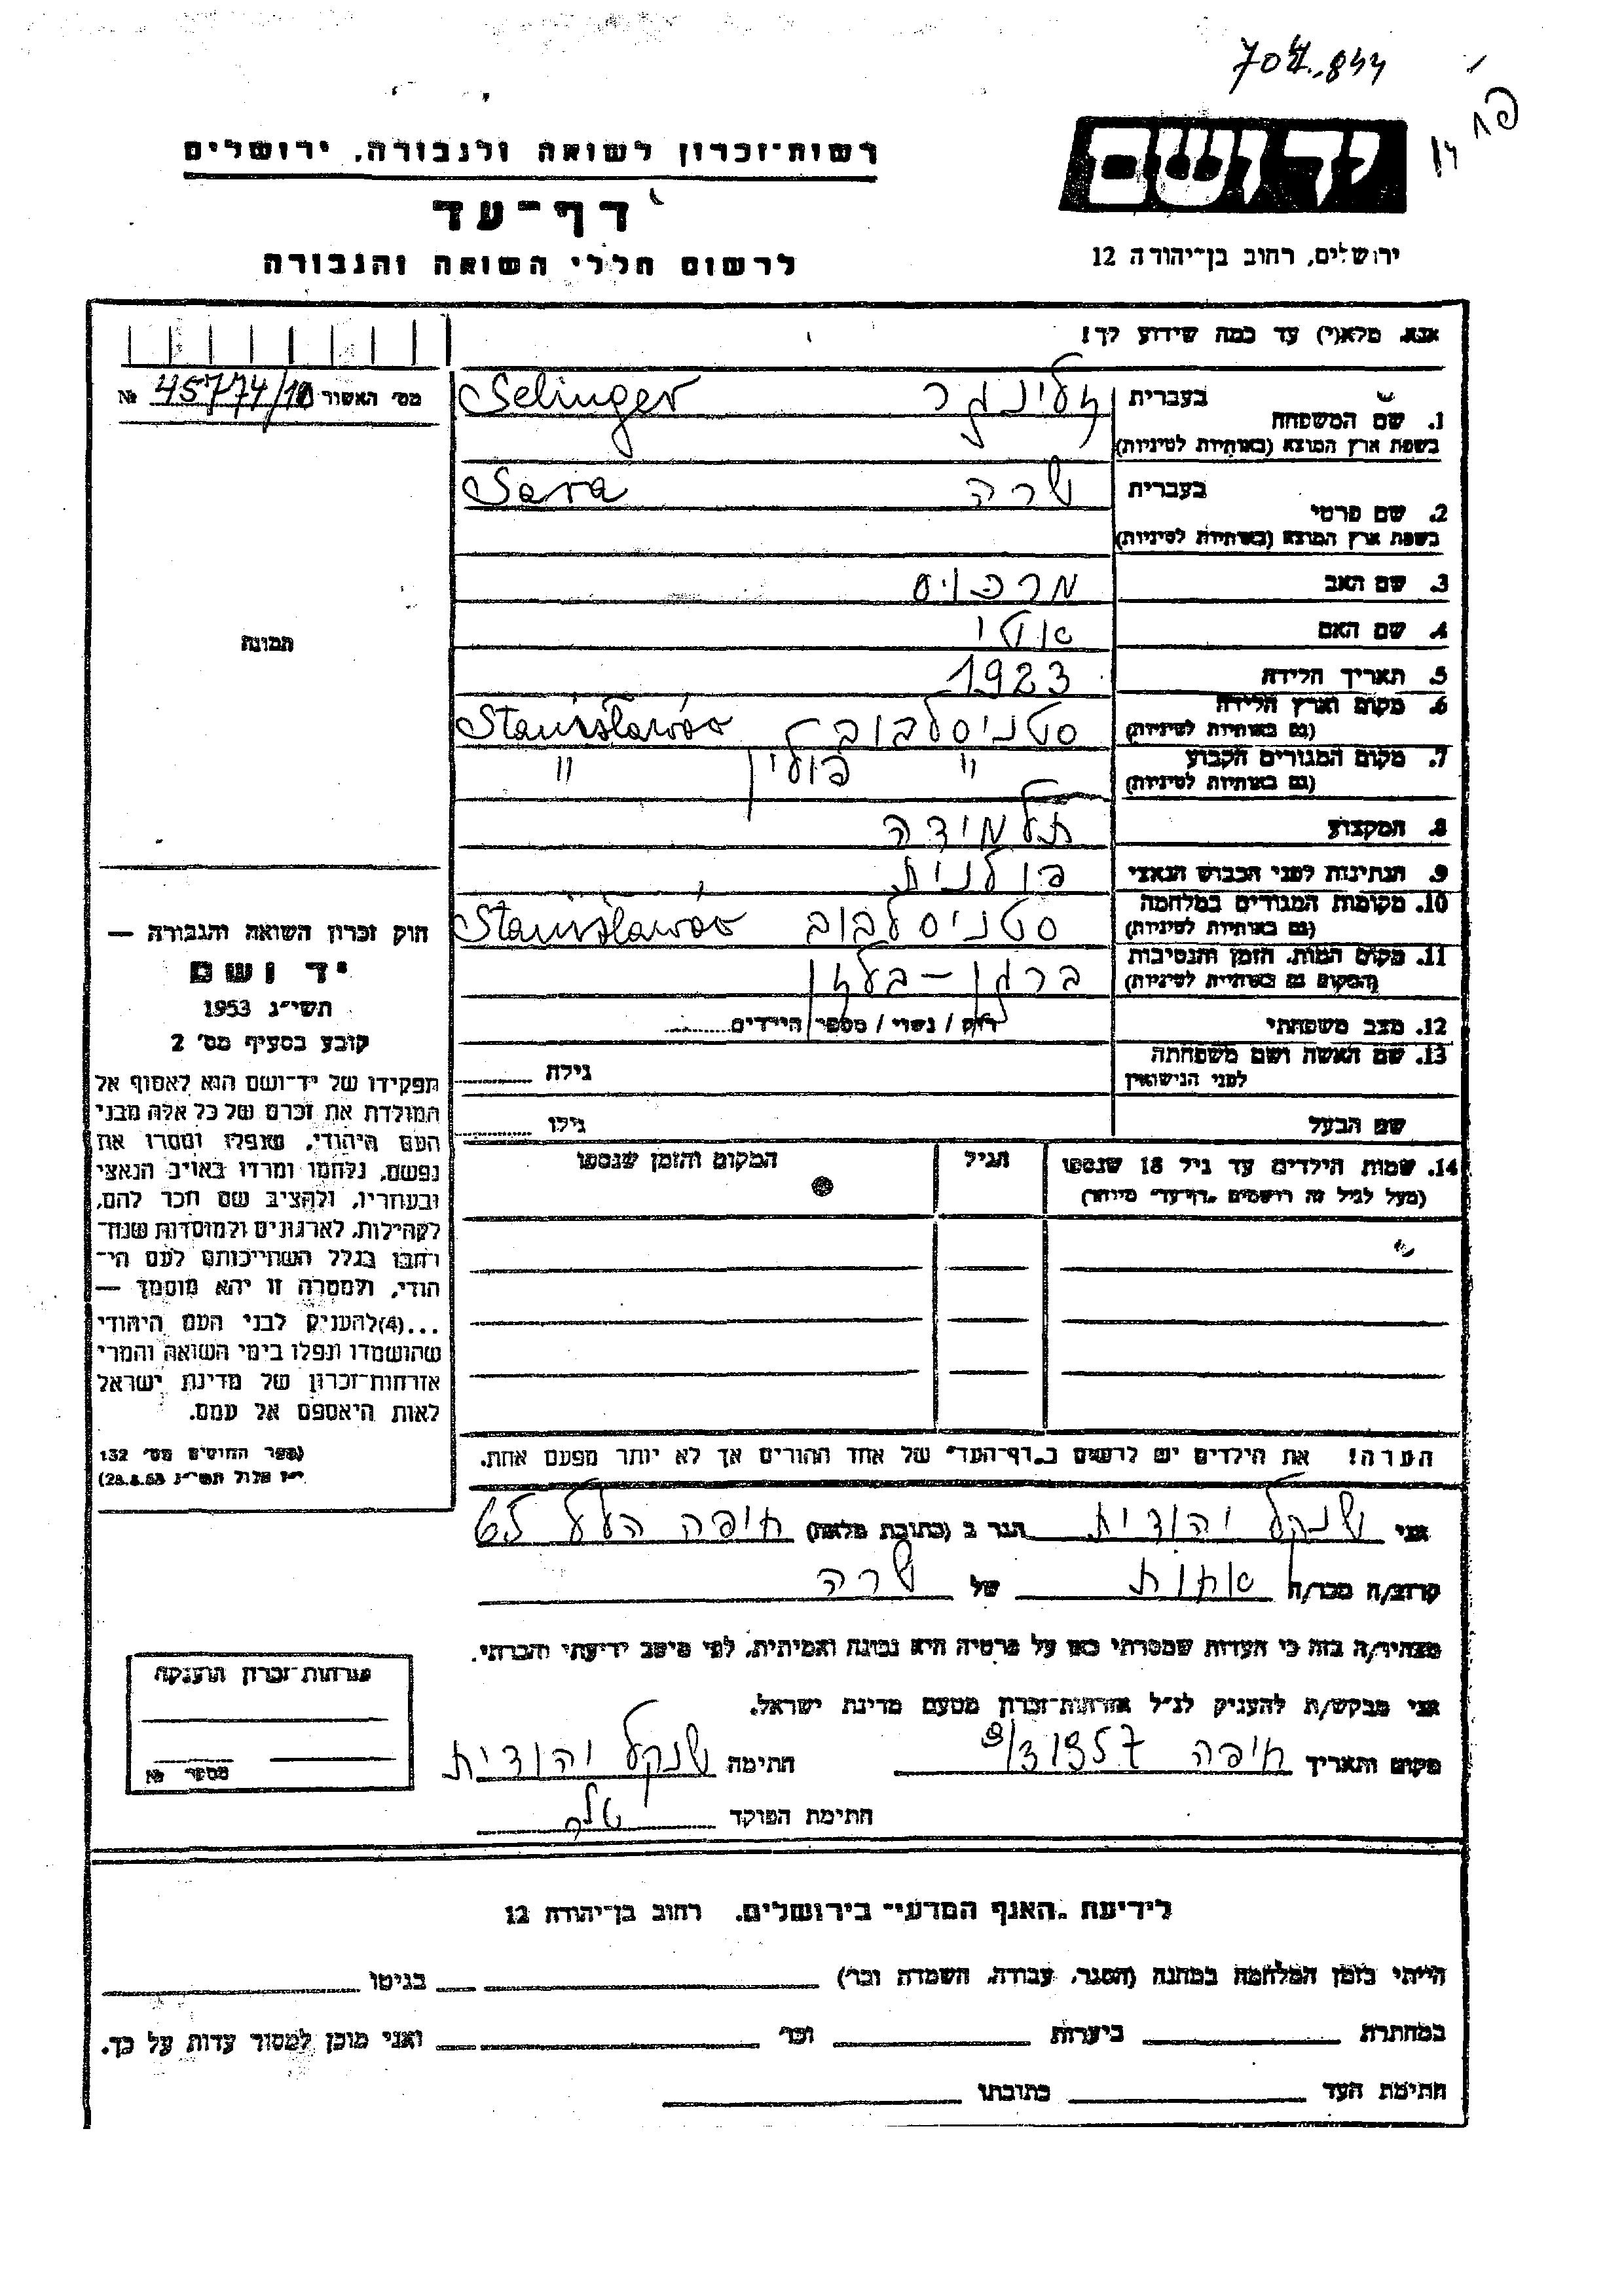 704.,844
רשות־זכרון לשואה ולגבורה, ירושלים
דף־עד
לרשום חללי השואה והגבורה
יד ושם
ירושלים, רחוב בן־יהודה 12
אנא, מלא(י) עד כמה שידוע לך!
מס׳ האשור 45774/10 №
1. שם המשפחה בעברית זלינגר Selinger
בשפת ארץ המוצא (באותיות לטיניות)
2. שם פרטי בעברית שרה Sara
בשפת ארץ המוצא (באותיות לטיניות)
3. שם האב מרכוס
4. שם האם
5. תאריך הלידה 1923
6. מקום וארץ הלידה סטניסלבוב Stanisławów
(גם באותיות לטיניות)
7. מקום המגורים הקבוע " פולין "
(גם באותיות לטיניות)
8. המקצוע תלמידה
9. הנתינות לפני הכבוש הנאצי פולנית
10. מקומות המגורים במלחמה סטניסלבוב Stanisławów
(גם באותיות לטיניות)
11. מקום המות, הזמן והנסיבות ברגן – בלזן
(המקום גם באותיות לטיניות)
12. מצב משפחתי רוק / נשוי / מספר הילדים
13. שם האשה ושם משפחתה גילה
לפני הנישואין
שם הבעל גילו
14. שמות הילדים עד גיל 18 שנספו הגיל המקום והזמן שנספו
(מעל לגיל זה רושמים „דף־עד״ מיוחד)
הערה! את הילדים יש לרשום ב„דף־העד״ של אחד ההורים אך לא יותר מפעם אחת.
תמונה
חוק זכרון השואה והגבורה —
יד ושם
תשי״ג 1953
קובע בסעיף מס׳ 2
תפקידו של יד־ושם הוא לאסוף אל
המולדת את זכרם של כל אלה מבני
העם היהודי, שנפלו ומסרו את
נפשם, נלחמו ומרדו באויב הנאצי
ובעוזריו, ולהציב שם וזכר להם,
לקהילות, לארגונים ולמוסדות שנח־
רבו בגלל השתייכותם לעם הי־
הודי, ולמטרה זו יהא מוסמך —
...(4)להעניק לבני העם היהודי
שהושמדו ונפלו בימי השואה והמרי
אזרחות־זכרון של מדינת ישראל
לאות היאספם אל עמם.
(ספר החוקים מס׳ 132
י״ז אלול תשי״ג 28.8.53)
אני שנקל יהודית הגר ב (כתובת מלאה) חיפה 65
קרוב/ה מכר/ה אחות של שרה
מצהיר/ה בזה כי העדות שמסרתי כאן על פרטיה היא נכונה ואמיתית, לפי מיטב ידיעתי והכרתי.
אני מבקש/ת להעניק לנ״ל אזרחות־זכרון מטעם מדינת ישראל.
מקום ותאריך חיפה 8/3 1957 חתימה שנקל יהודית
חתימת הפוקד
אזרחות־זכרון הוענקה
מספר №
לידיעת „האגף המדעי״ בירושלים, רחוב בן־יהודה 12
הייתי בזמן המלחמה במחנה (הסגר, עבודה, השמדה וכו׳) בגיטו
במחתרת ביערות וכו׳ ואני מוכן למסור עדות על כך.
חתימת העד כתובתו